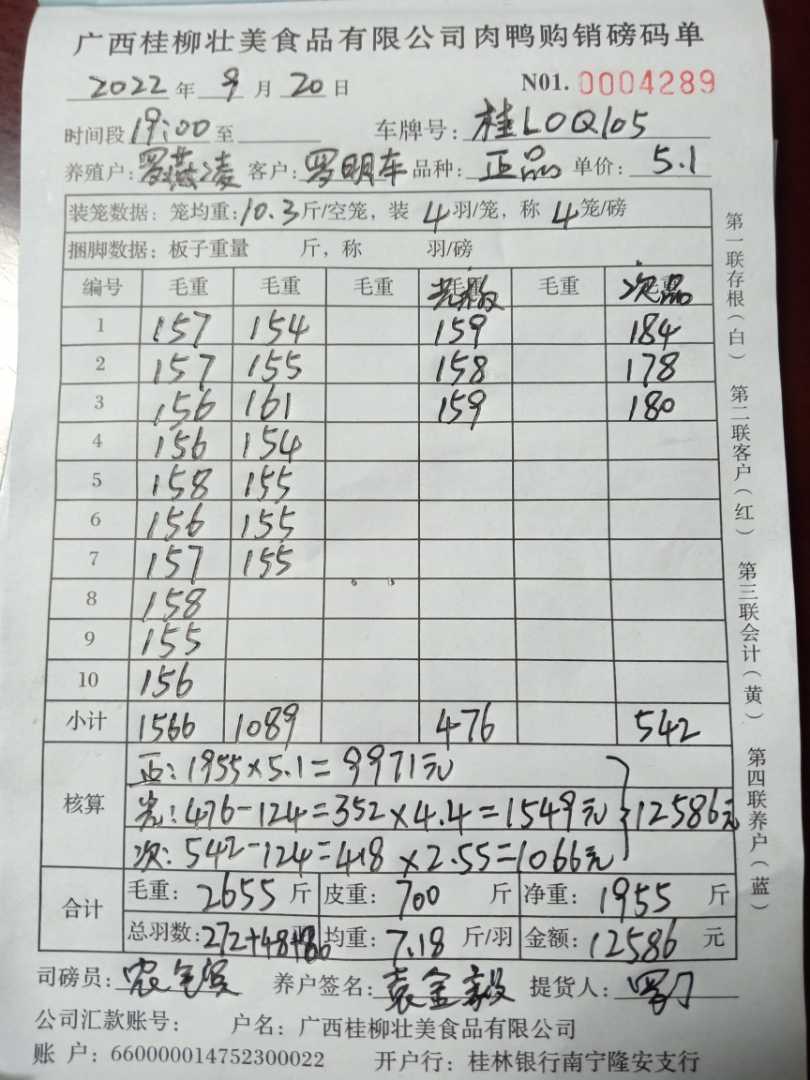 广西桂柳壮美食品有限公司肉鸭购销磅码单
2022年9月20日 N01. 0004289
时间段19:00至 车牌号:桂LOQ105
养殖户:罗燕凌 客户:罗明车 品种:正品 单价:5.1
装笼数据:笼均重:10.3斤/空笼,装4羽/笼,称4笼/磅
捆脚数据:板子重量 斤,称 羽/磅
编号 毛重 毛重 毛重 毛重 次品
1 157 154 159 184
2 157 155 158 178
3 156 161 159 180
4 156 154
5 158 155
6 156 155
7 157 155
8 158
9 155
10 156
小计 1566 1089 476 542
核算 正:1955×5.1=9971元
光:476-124=352×4.4=1549元 12586元
次:542-124=418×2.55=1066元
合计 毛重:2655斤 皮重:700斤 净重:1955斤
总羽数:272+48+ 均重:7.18斤/羽 金额:12586元
司磅员: 养户签名:袁金毅 提货人:
公司汇款账号: 户名:广西桂柳壮美食品有限公司
账 户:660000014752300022 开户行:桂林银行南宁隆安支行
第一联存根(白) 第二联客户(红) 第三联会计(黄) 第四联养户(蓝)